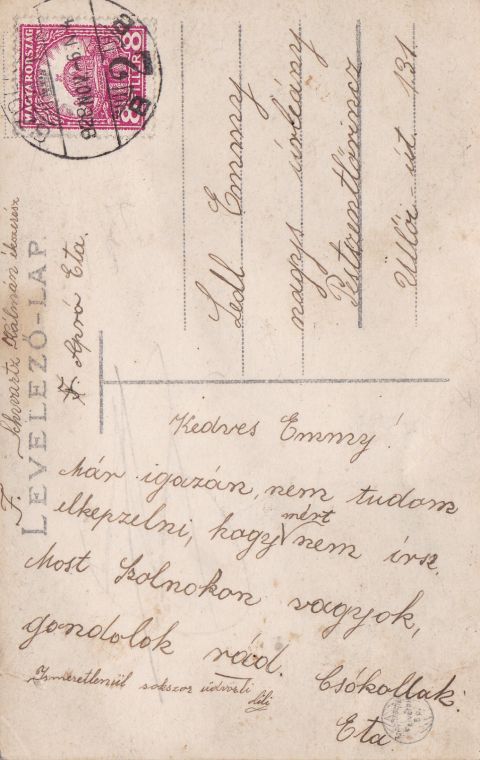 MAGYARORSZÁG
8 FILLÉR 8
928 NOV
LEVELEZŐ-LAP.
F. Schvartz Kálmán ékszerész
F. Apró Eta.
Ledl Emmy
nagys úrleány
Pestszentlőrincz
Üllői-út 131.
Kedves Emmy!
Már igazán, nem tudom
elképzelni, hogy mért nem írsz.
Most Szolnokon vagyok,
gondolok rád.
Csókollak:
Eta
Ismeretlenül sokszor üdvözli
Lili